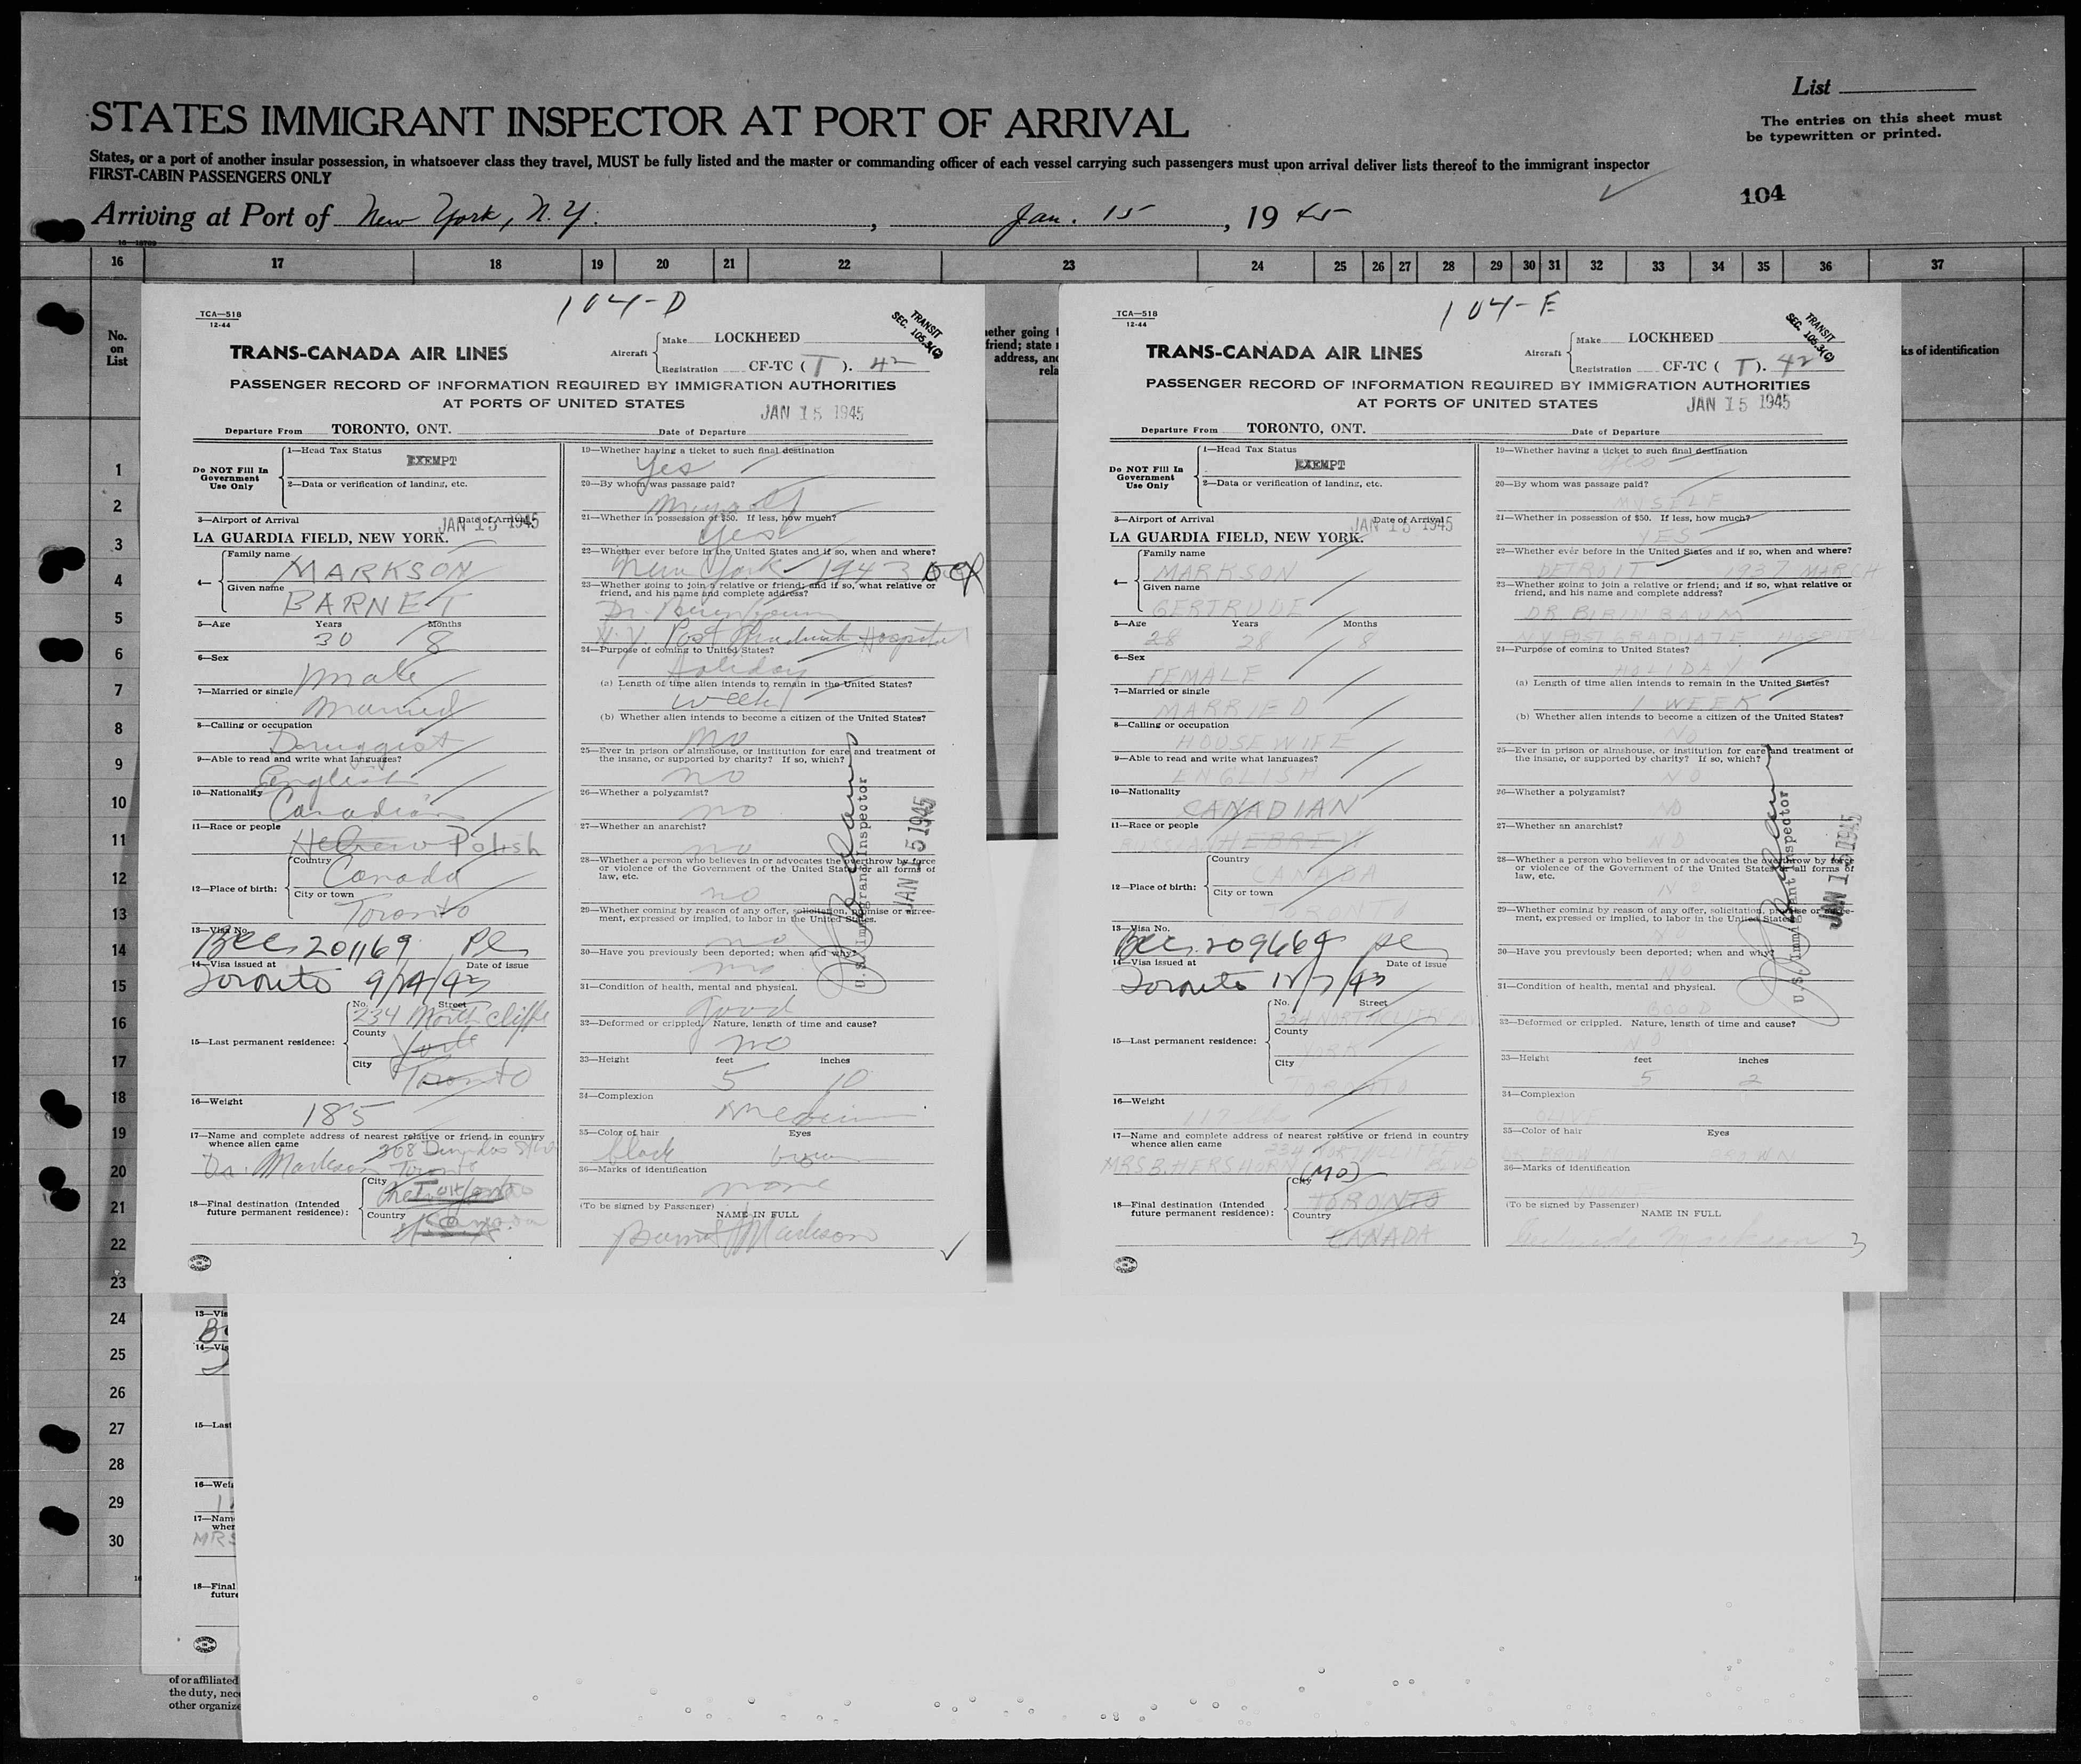 List
STATES IMMIGRANT INSPECTOR AT PORT OF ARRIVAL
The entries on this sheet must
be typewritten or printed.
States, or a port of another insular possession, in whatsoever class they travel, MUST be fully listed and the master or commanding officer of each vessel carrying such passengers must upon arrival deliver lists thereof to the immigrant inspector
FIRST-CABIN PASSENGERS ONLY
104
Arriving at Port of New York, N.Y., Jan. 15, 1945
16 17 18 19 20 21 22 23 24 25 26 27 28 29 30 31 32 33 34 35 36 37
No.
on
List
1
2
3
4
5
6
7
8
9
10
11
12
13
14
15
16
17
18
19
20
21
22
23
24
25
26
27
28
29
30
ether going
friend; state
address, and
rela
ks of identification
104-D
TCA—518
12-44
TRANSIT
SEC. 105.3(C)
TRANS-CANADA AIR LINES
Aircraft
Make LOCKHEED
Registration CF-TC (T). 42
PASSENGER RECORD OF INFORMATION REQUIRED BY IMMIGRATION AUTHORITIES
AT PORTS OF UNITED STATES
JAN 15 1945
Departure From TORONTO, ONT. Date of Departure
Do NOT Fill In
Government
Use Only
1—Head Tax Status
EXEMPT
2—Data or verification of landing, etc.
3—Airport of Arrival Date of Arrival
JAN 15 1945
LA GUARDIA FIELD, NEW YORK.
4—
Family name
MARKSON
Given name
BARNET
5—Age Years Months
30 8
6—Sex
Male
7—Married or single
Married
8—Calling or occupation
Druggist
9—Able to read and write what languages?
English
10—Nationality
Canadian
11—Race or people
Hebrew Polish
12—Place of birth:
Country
Canada
City or town
Toronto
13—Visa No.
BCC 201169
14—Visa issued at Date of issue
Toronto 9/24/43
15—Last permanent residence:
No. Street
234 Northcliffe
County
York
City
Toronto
16—Weight
185
17—Name and complete address of nearest relative or friend in country
whence alien came
Dr. Markson Toronto
18—Final destination (Intended
future permanent residence):
City
Country
19—Whether having a ticket to such final destination
Yes
20—By whom was passage paid?
Myself
21—Whether in possession of $50. If less, how much?
yes
22—Whether ever before in the United States and if so, when and where?
New York 1943
23—Whether going to join a relative or friend; and if so, what relative or
friend, and his name and complete address?
Dr. Birenbaum
N.Y. Post Graduate Hospital
24—Purpose of coming to United States?
Holiday
(a) Length of time alien intends to remain in the United States?
week
(b) Whether alien intends to become a citizen of the United States?
no
25—Ever in prison or almshouse, or institution for care and treatment of
the insane, or supported by charity? If so, which?
no
26—Whether a polygamist?
no
27—Whether an anarchist?
no
28—Whether a person who believes in or advocates the overthrow by force
or violence of the Government of the United States or all forms of
law, etc.
no
29—Whether coming by reason of any offer, solicitation, promise or agree-
ment, expressed or implied, to labor in the United States.
no
30—Have you previously been deported; when and why?
no
31—Condition of health, mental and physical.
good
32—Deformed or crippled. Nature, length of time and cause?
no
33—Height feet inches
5 10
34—Complexion
Medium
35—Color of hair Eyes
black brown
36—Marks of identification
none
(To be signed by Passenger)
NAME IN FULL
Barnet Markson
U.S. Immigrant Inspector
JAN 15 1945
PRINTED IN CANADA
104-E
TCA—518
12-44
TRANSIT
SEC. 105.3(C)
TRANS-CANADA AIR LINES
Aircraft
Make LOCKHEED
Registration CF-TC (T). 42
PASSENGER RECORD OF INFORMATION REQUIRED BY IMMIGRATION AUTHORITIES
AT PORTS OF UNITED STATES
JAN 15 1945
Departure From TORONTO, ONT. Date of Departure
Do NOT Fill In
Government
Use Only
1—Head Tax Status
EXEMPT
2—Data or verification of landing, etc.
3—Airport of Arrival Date of Arrival
JAN 15 1945
LA GUARDIA FIELD, NEW YORK.
4—
Family name
MARKSON
Given name
GERTRUDE
5—Age Years Months
28 28 8
6—Sex
FEMALE
7—Married or single
MARRIED
8—Calling or occupation
HOUSEWIFE
9—Able to read and write what languages?
ENGLISH
10—Nationality
CANADIAN
11—Race or people
RUSSIAN HEBREW
12—Place of birth:
Country
CANADA
City or town
TORONTO
13—Visa No.
BCC 209669
14—Visa issued at Date of issue
Toronto 12/7/43
15—Last permanent residence:
No. Street
234 NORTHCLIFFE
County
YORK
City
TORONTO
16—Weight
117
17—Name and complete address of nearest relative or friend in country
whence alien came
234 NORTHCLIFFE
MRS B. HERSHORN (MO) BLVD
18—Final destination (Intended
future permanent residence):
City
TORONTO
Country
CANADA
19—Whether having a ticket to such final destination
Yes
20—By whom was passage paid?
MYSELF
21—Whether in possession of $50. If less, how much?
YES
22—Whether ever before in the United States and if so, when and where?
DETROIT 1937 MARCH
23—Whether going to join a relative or friend; and if so, what relative or
friend, and his name and complete address?
DR. BIRINBAUM
N.Y. POST GRADUATE HOSPIT
24—Purpose of coming to United States?
HOLIDAY
(a) Length of time alien intends to remain in the United States?
1 WEEK
(b) Whether alien intends to become a citizen of the United States?
NO
25—Ever in prison or almshouse, or institution for care and treatment of
the insane, or supported by charity? If so, which?
NO
26—Whether a polygamist?
NO
27—Whether an anarchist?
NO
28—Whether a person who believes in or advocates the overthrow by force
or violence of the Government of the United States or all forms of
law, etc.
NO
29—Whether coming by reason of any offer, solicitation, promise or agree-
ment, expressed or implied, to labor in the United States.
30—Have you previously been deported; when and why?
NO
31—Condition of health, mental and physical.
GOOD
32—Deformed or crippled. Nature, length of time and cause?
NO
33—Height feet inches
5 2
34—Complexion
OLIVE
35—Color of hair Eyes
DK BROWN BROWN
36—Marks of identification
NONE
(To be signed by Passenger)
NAME IN FULL
Gertrude Markson
3
U.S. Immigrant Inspector
JAN 15 1945
PRINTED IN CANADA
13—Vis
14—Vis
15—Last
16—Weig
17—Nam
when
MRS
18—Final
future
of or affiliated
the duty, nec
other organize